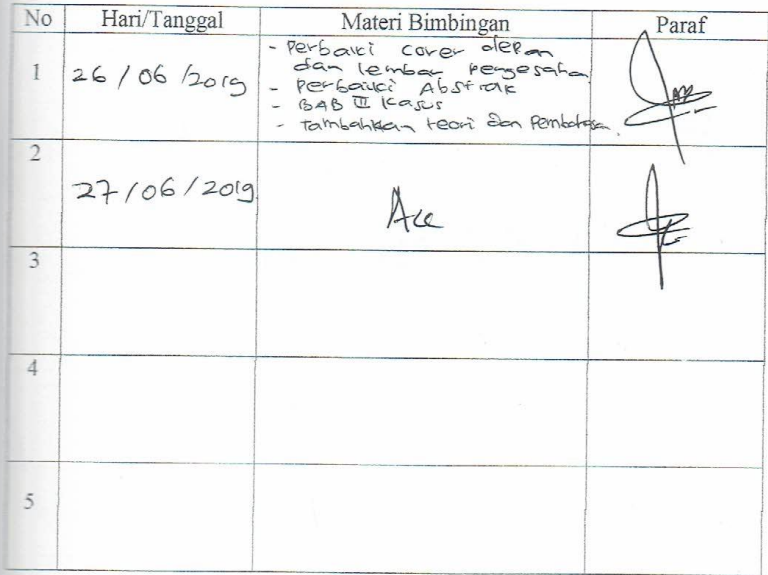 No Hari/Tanggal Materi Bimbingan Paraf
1 26 / 06 / 2019
- Perbaiki cover depan
dan lembar pengesahan
- Perbaiki Abstrak
- BAB III Kasus
- tambahkan teori dan Pembahasan.
2 27 / 06 / 2019 Acc
3
4
5